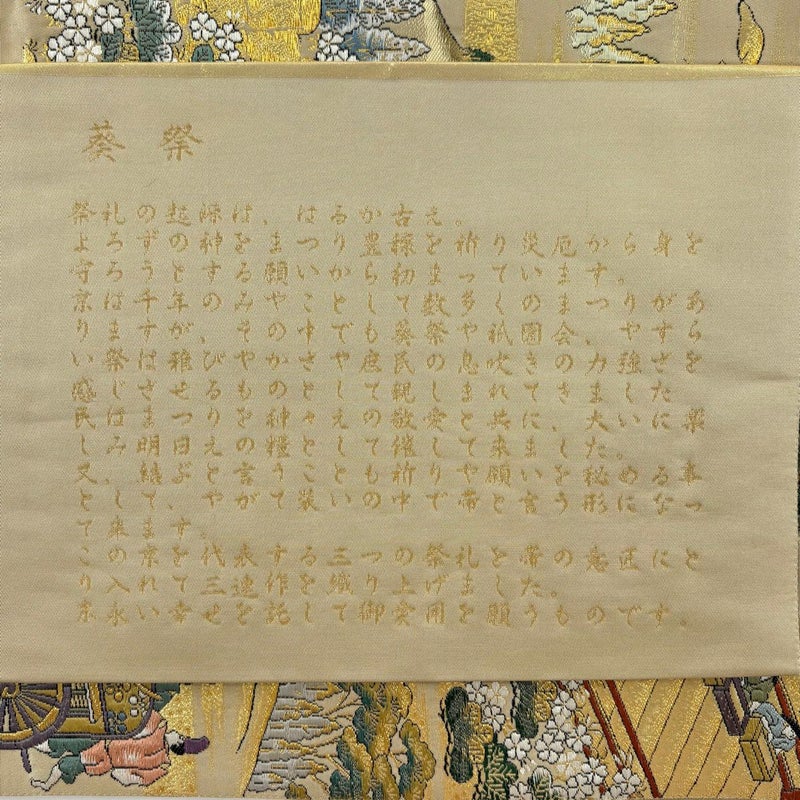 葵祭
祭礼の起源は、はるか古え。
よろずの神をまつり豊穣を祈り災厄から身を
守ろうとする願いから初まっています。
京は千年のみやことして数多くのまつりがあ
りますが、その中でも葵祭や祇園会、やすら
い祭は雅びやかさや庶民の息吹きの力強さを
感じさせるものとして親しまれてきました。
民はまつりをの神々え敬愛と共に、大いに楽
しみ、明日えの糧としても催して来ました。
又、結ぶと言うこといのりや願いを秘める事
として、やがて装いの中で帯と言う形になっ
て来ます。
この京を代表する三つの祭礼を帯の意匠にと
り入れて三連作を織り上げました。
末永い幸せを託して御愛用を願うものです。